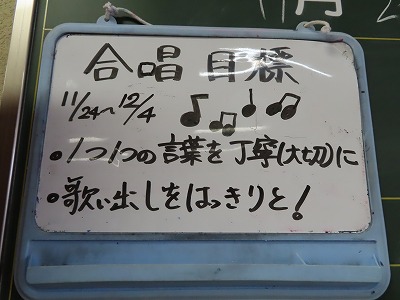 合唱 目標
11/24〜12/4
・1つ1つの言葉を丁寧(大切)に
・歌い出しをはっきりと!